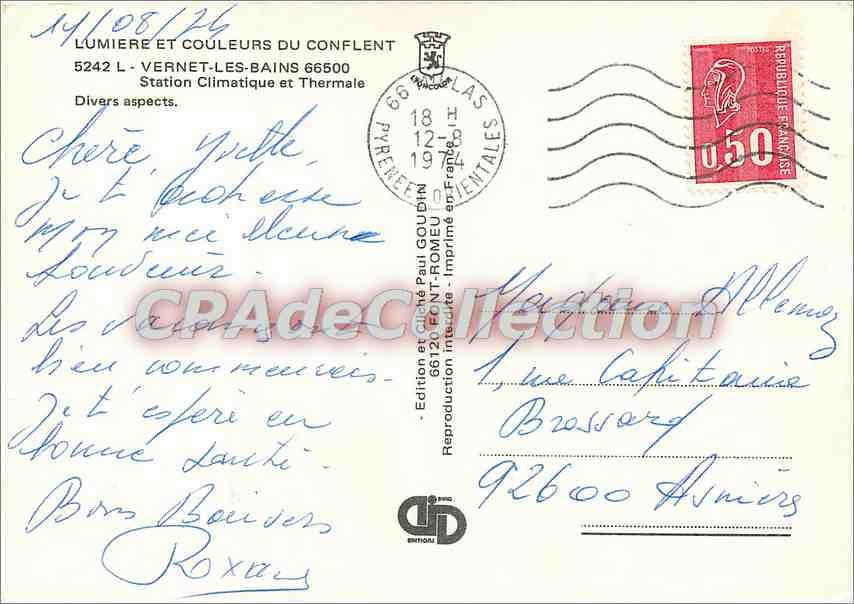 11/08/74
LUMIERE ET COULEURS DU CONFLENT
5242 L - VERNET-LES-BAINS 66500
Station Climatique et Thermale
Divers aspects.
Chère Yvette,
Je t'adresse
mon
Les vacances sont
bien commencées.
Je t'espère en
bonne santé.
Bons Baisers
Roxane
LYONCOLOR
66
18 H
12-8
1974
PYRENEES ORIENTALES
REPUBLIQUE FRANÇAISE
POSTES
0,50
- Edition et Cliché Paul GOUDIN -
66120 FONT-ROMEU
Reproduction interdite - Imprimé en France
CPAdeCollection
Madame Allemoz
1, rue Capitaine
Brossard
92600 Asnières
EDITIONS